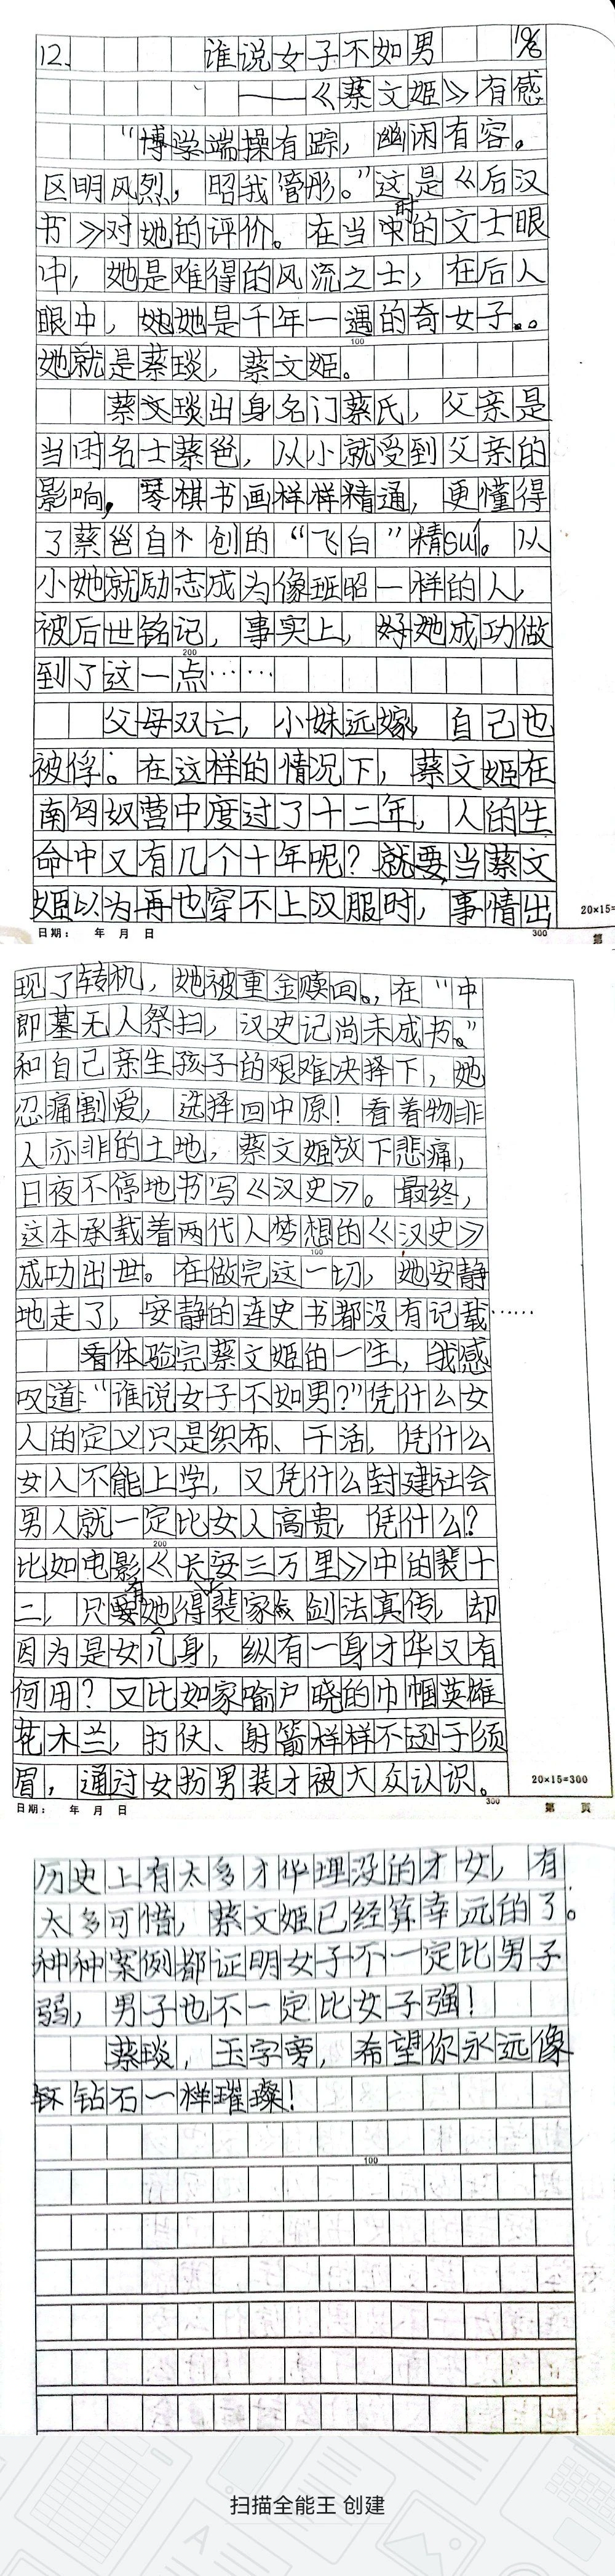 12. 谁说女子不如男
——《蔡文姬》有感
“博学端操有踪，幽闲有容。
区明风烈，昭我管彤。”这是《后汉
书》对她的评价。在当时的文士眼
中，她是难得的风流之士，在后人
眼中，她是千年一遇的奇女子。
她就是蔡琰，蔡文姬。
蔡文琰出身名门蔡氏，父亲是
当时名士蔡邕，从小就受到父亲的
影响，琴棋书画样样精通，更懂得
了蔡邕自个创的“飞白”精sui。从
小她就励志成为像班昭一样的人，
被后世铭记，事实上，她成功做
到了这一点……
父母双亡，小妹远嫁，自己也
被俘。在这样的情况下，蔡文姬在
南匈奴营中度过了十二年，人的生
命中又有几个十年呢？就要当蔡文
姬以为再也穿不上汉服时，事情出
20×15=
日期： 年 月 日
300
第
现了转机，她被重金赎回。，在“中
郎墓无人祭扫，汉史记尚未成书。”
和自己亲生孩子的艰难决择下，她
忍痛割爱，选择回中原！看着物非
人亦非的土地，蔡文姬放下悲痛，
日夜不停地书写《汉史》。最终，
这本承载着两代人梦想的《汉史》
100
成功出世。在做完这一切，她安静
地走了，安静的连史书都没有记载……
看体验完蔡文姬的一生，我感
叹道：“谁说女子不如男？”凭什么女
人的定义只是织布、干活，凭什么
女人不能上学，又凭什么封建社会
男人就一定比女人高贵，凭什么？
200
比如电影《长安三万里》中的裴十
二，只有她得裴家剑法真传，却
因为是女儿身，纵有一身才华又有
何用？又比如家喻户晓的巾帼英雄
花木兰，打仗、射箭样样不逊于须
眉，通过女扮男装才被大众认识。
20×15=300
日期： 年 月 日
300
第 页
历史上有太多才华埋没的才女，有
太多可惜，蔡文姬已经算幸运的了。
种种案例都证明女子不一定比男子
弱，男子也不一定比女子强！
蔡琰，玉字旁，希望你永远像
钻石一样璀璨！
100
扫描全能王 创建